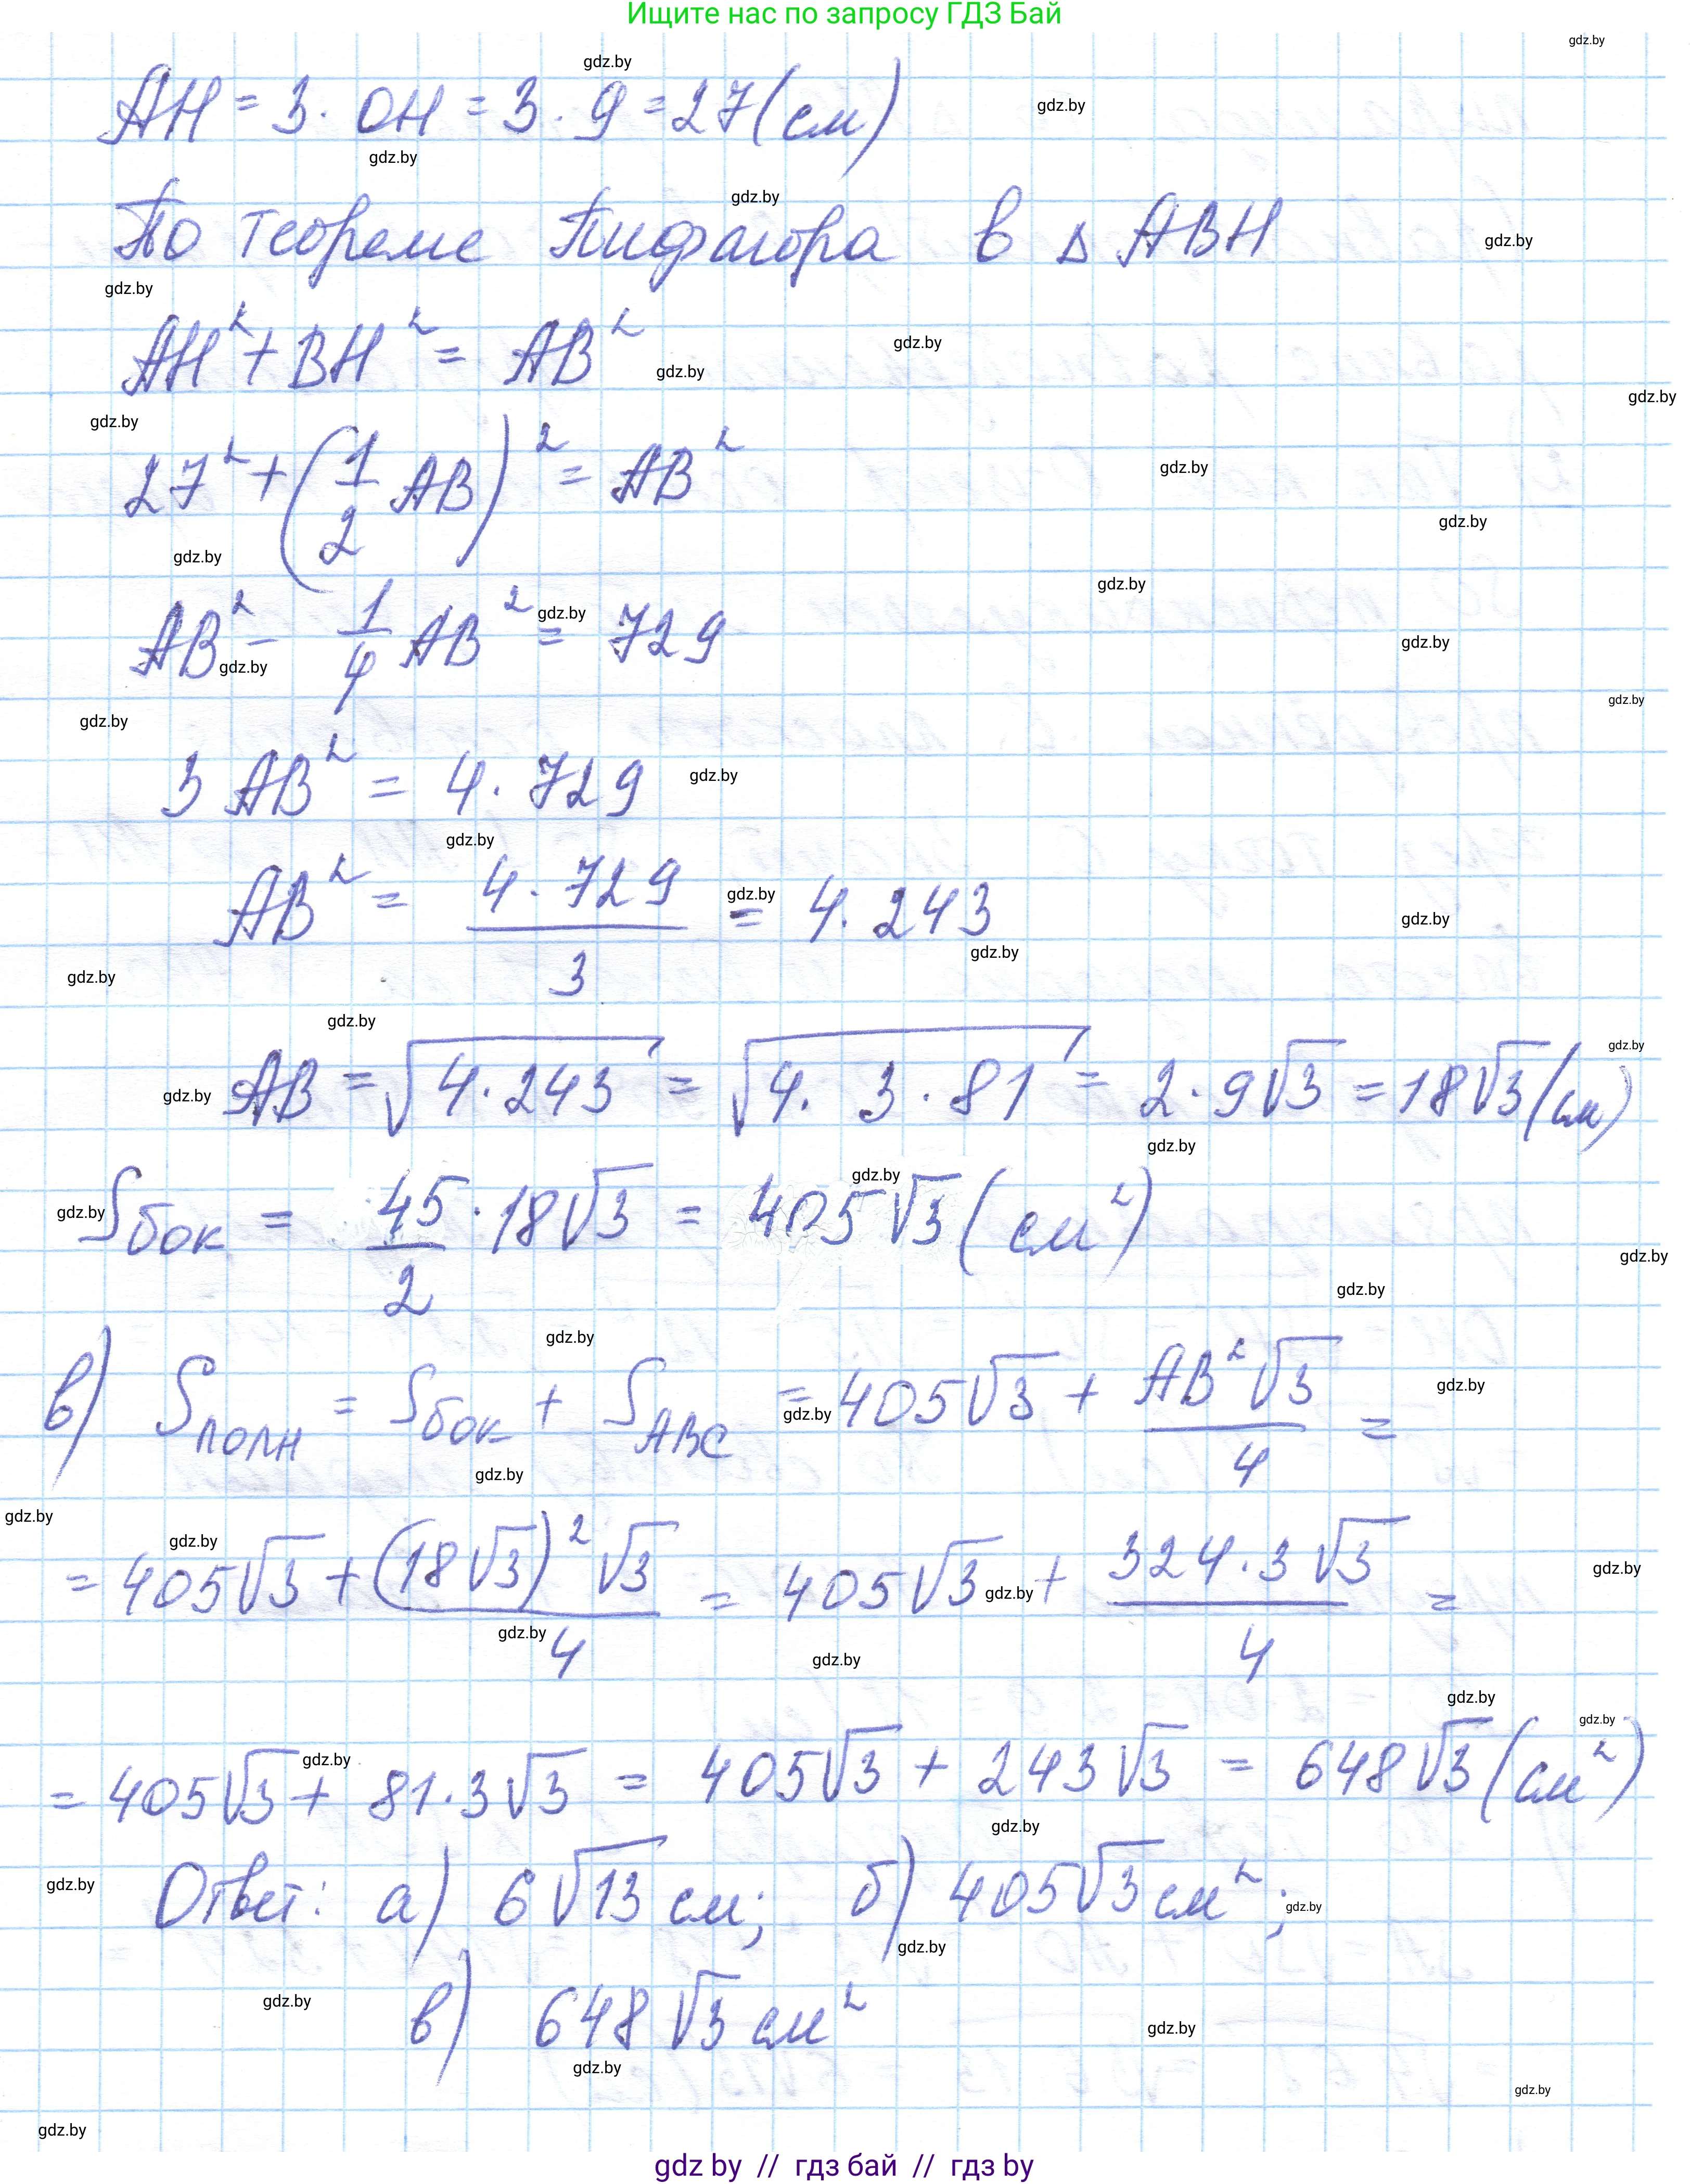 Ищите нас по запросу ГДЗ Бай
AH = 3 · OH = 3 · 9 = 27 (см)
По теореме Пифагора в △ ABH
AH² + BH² = AB²
27² + (1/2 AB)² = AB²
AB² - 1/4 AB² = 729
3 AB² = 4 · 729
AB² = 4 · 729 / 3 = 4 · 243
AB = √(4 · 243) = √(4 · 3 · 81) = 2 · 9√3 = 18√3 (см)
Sбок = 45/2 · 18√3 = 405√3 (см²)
в) Sполн = Sбок + SABC = 405√3 + AB²√3 / 4 =
= 405√3 + (18√3)²√3 / 4 = 405√3 + 324 · 3√3 / 4 =
= 405√3 + 81 · 3√3 = 405√3 + 243√3 = 648√3 (см²)
Ответ: а) 6√13 см; б) 405√3 см²;
в) 648√3 см²
gdz by // гдз бай // гдз by